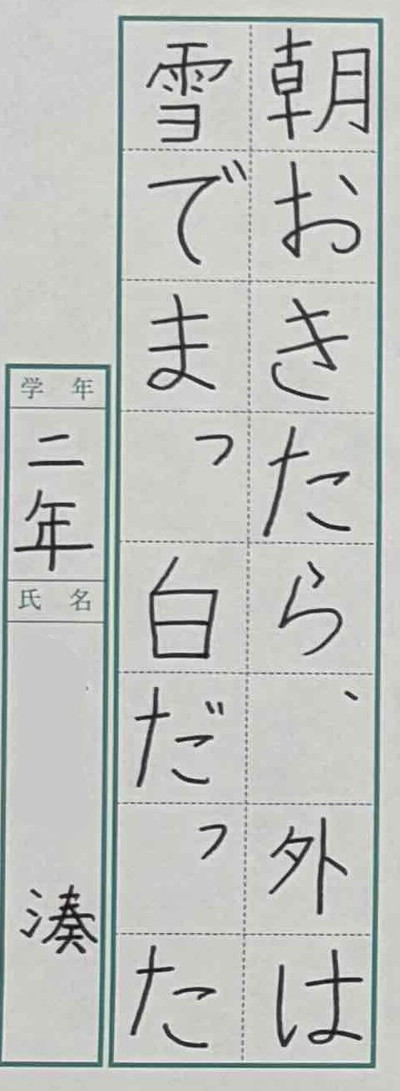 朝おきたら、外は
雪でまっ白だった
学年
二年
氏名
湊